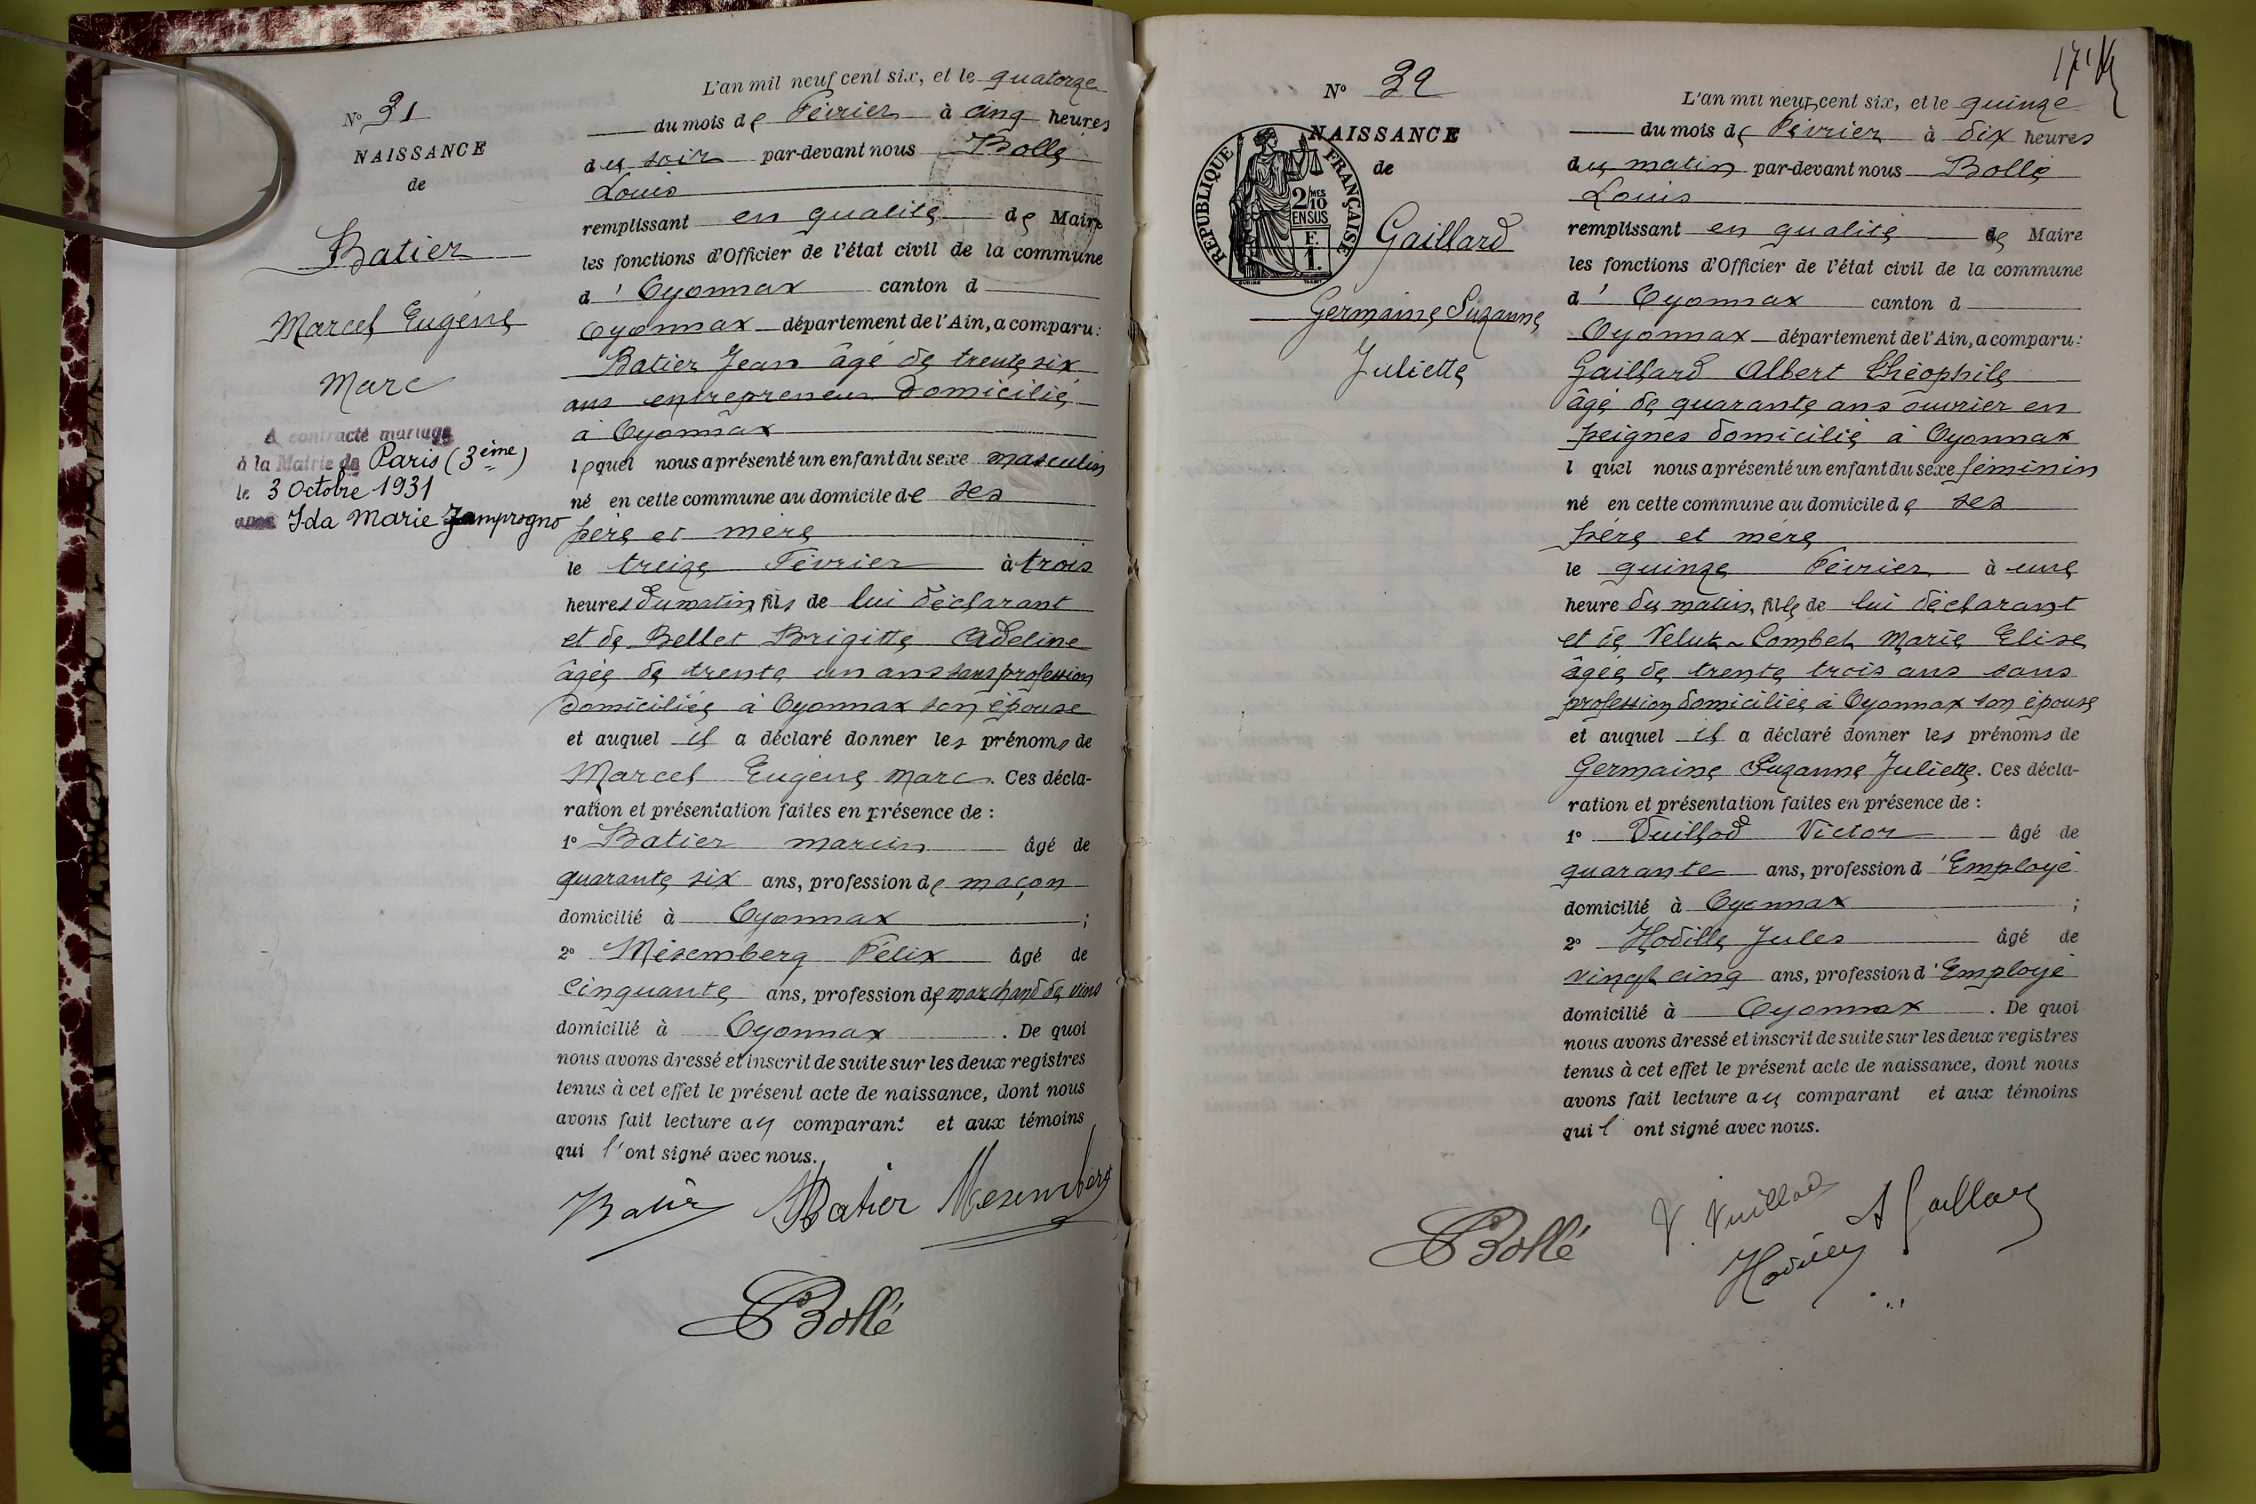 N° 31
NAISSANCE
de
Batier
Marcel Eugène
Marc
A contracté mariage
à la Mairie de Paris (3ème)
le 3 Octobre 1931
avec Ida Marie Zamprogno
L'an mil neuf cent six, et le quatorze
du mois de Février à cinq heures
du soir par-devant nous Bollé
Louis
remplissant en qualité de Maire
les fonctions d'Officier de l'état civil de la commune
d' Oyonnax canton d
Oyonnax département de l'Ain, a comparu :
Batier Jean âgé de trente six
ans entrepreneur domicilié
à Oyonnax
lequel nous a présenté un enfant du sexe masculin
né en cette commune au domicile de ses
père et mère
le treize Février à trois
heures du matin, fils de lui déclarant
et de Bellet Brigitte Adeline
âgée de trente un ans sans profession
domiciliée à Oyonnax son épouse
et auquel il a déclaré donner les prénoms de
Marcel Eugène Marc. Ces décla-
ration et présentation faites en présence de :
1° Batier Marien âgé de
quarante six ans, profession de maçon
domicilié à Oyonnax ;
2° Mésemberg Félix âgé de
cinquante ans, profession de marchand de vins
domicilié à Oyonnax . De quoi
nous avons dressé et inscrit de suite sur les deux registres
tenus à cet effet le présent acte de naissance, dont nous
avons fait lecture au comparant et aux témoins
qui l'ont signé avec nous.
Batier Batier Mesemberg
Bollé
N° 32
NAISSANCE
de
RÉPUBLIQUE FRANÇAISE
2 MES
10
EN SUS
F.
1.
Gaillard
Germaine Suzanne
Juliette
L'an mil neuf cent six, et le quinze
du mois de Février à dix heures
du matin par-devant nous Bollé
Louis
remplissant en qualité de Maire
les fonctions d'Officier de l'état civil de la commune
d' Oyonnax canton d
Oyonnax département de l'Ain, a comparu :
Gaillard Albert Théophile
âgé de quarante ans ouvrier en
peignes domicilié à Oyonnax
l quel nous a présenté un enfant du sexe féminin
né en cette commune au domicile de ses
père et mère
le quinze Février à une
heure du matin, fille de lui déclarant
et de Velut-Combet Marie Elise
âgée de trente trois ans sans
profession domiciliée à Oyonnax son épouse
et auquel il a déclaré donner les prénoms de
Germaine Suzanne Juliette. Ces décla-
ration et présentation faites en présence de :
1° Vuillod Victor âgé de
quarante ans, profession d'Employé
domicilié à Oyonnax ;
2° Hodille Jules âgé de
vingt cinq ans, profession d'Employé
domicilié à Oyonnax . De quoi
nous avons dressé et inscrit de suite sur les deux registres
tenus à cet effet le présent acte de naissance, dont nous
avons fait lecture au comparant et aux témoins
qui l' ont signé avec nous.
Bollé V. Vuillod A Gaillard